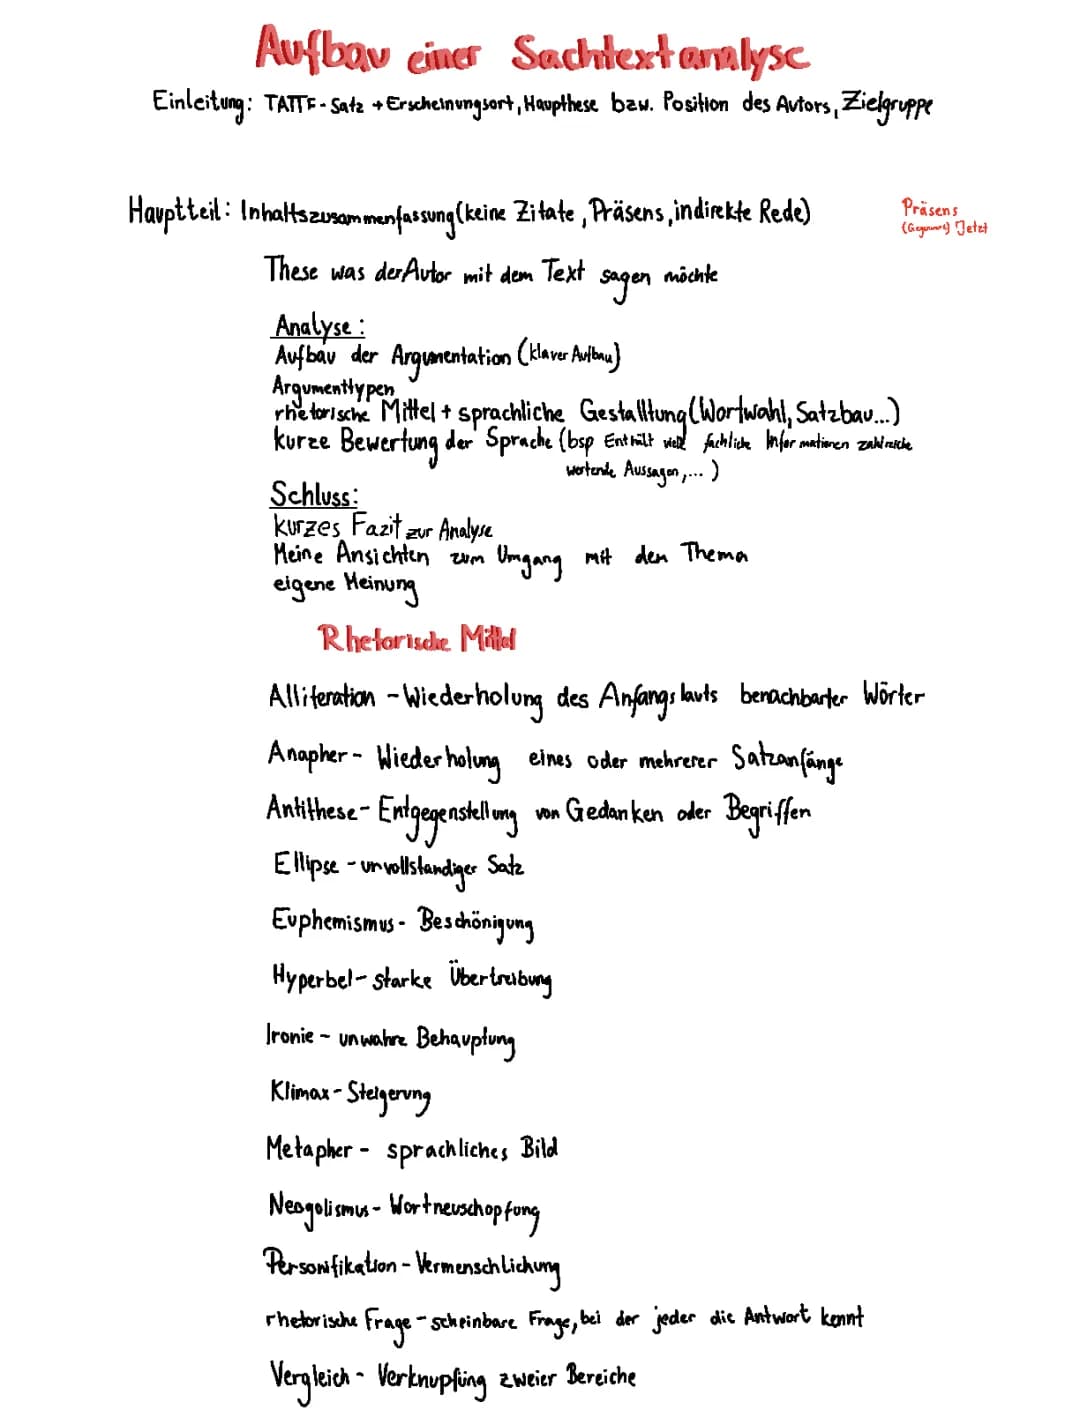 Aufbau einer Sachtextanalyse
Einleitung: TATTF-Satz + Erscheinungsort, Haupthese bzw. Position des Autors, Zielgruppe
Hauptteil: Inhaltszusammenfassung (keine Zitate, Präsens, indirekte Rede)
Präsens
(Gegenwart) Jetzt
These was der Autor mit dem Text sagen möchte
Analyse:
Aufbau der Argumentation (klarer Aufbau)
Argumenttypen
rhetorische Mittel + sprachliche Gestalltung (Wortwahl, Satzbau...)
kurze Bewertung der Sprache (bsp Enthält viele fachliche Informationen zahlreiche
wertende Aussagen,...)
Schluss:
kurzes Fazit zur Analyse
Meine Ansichten zum Umgang mit den Thema
eigene Meinung
Rhetorische Mittel
Alliteration - Wiederholung des Anfangslauts benachbarter Wörter
Anapher - Wiederholung eines oder mehrerer Satzanfänge
Antithese - Entgegenstellung von Gedanken oder Begriffen
Ellipse - unvollstandiger Satz
Euphemismus - Beschönigung
Hyperbel - starke Übertreibung
Ironie - unwahre Behauptung
Klimax - Steigerung
Metapher - sprachliches Bild
Neogolismus - Wortneuschopfung
Personifikation - Vermenschlichung
rhetorische Frage - scheinbare Frage, bei der jeder die Antwort kennt
Vergleich - Verknupfung zweier Bereiche